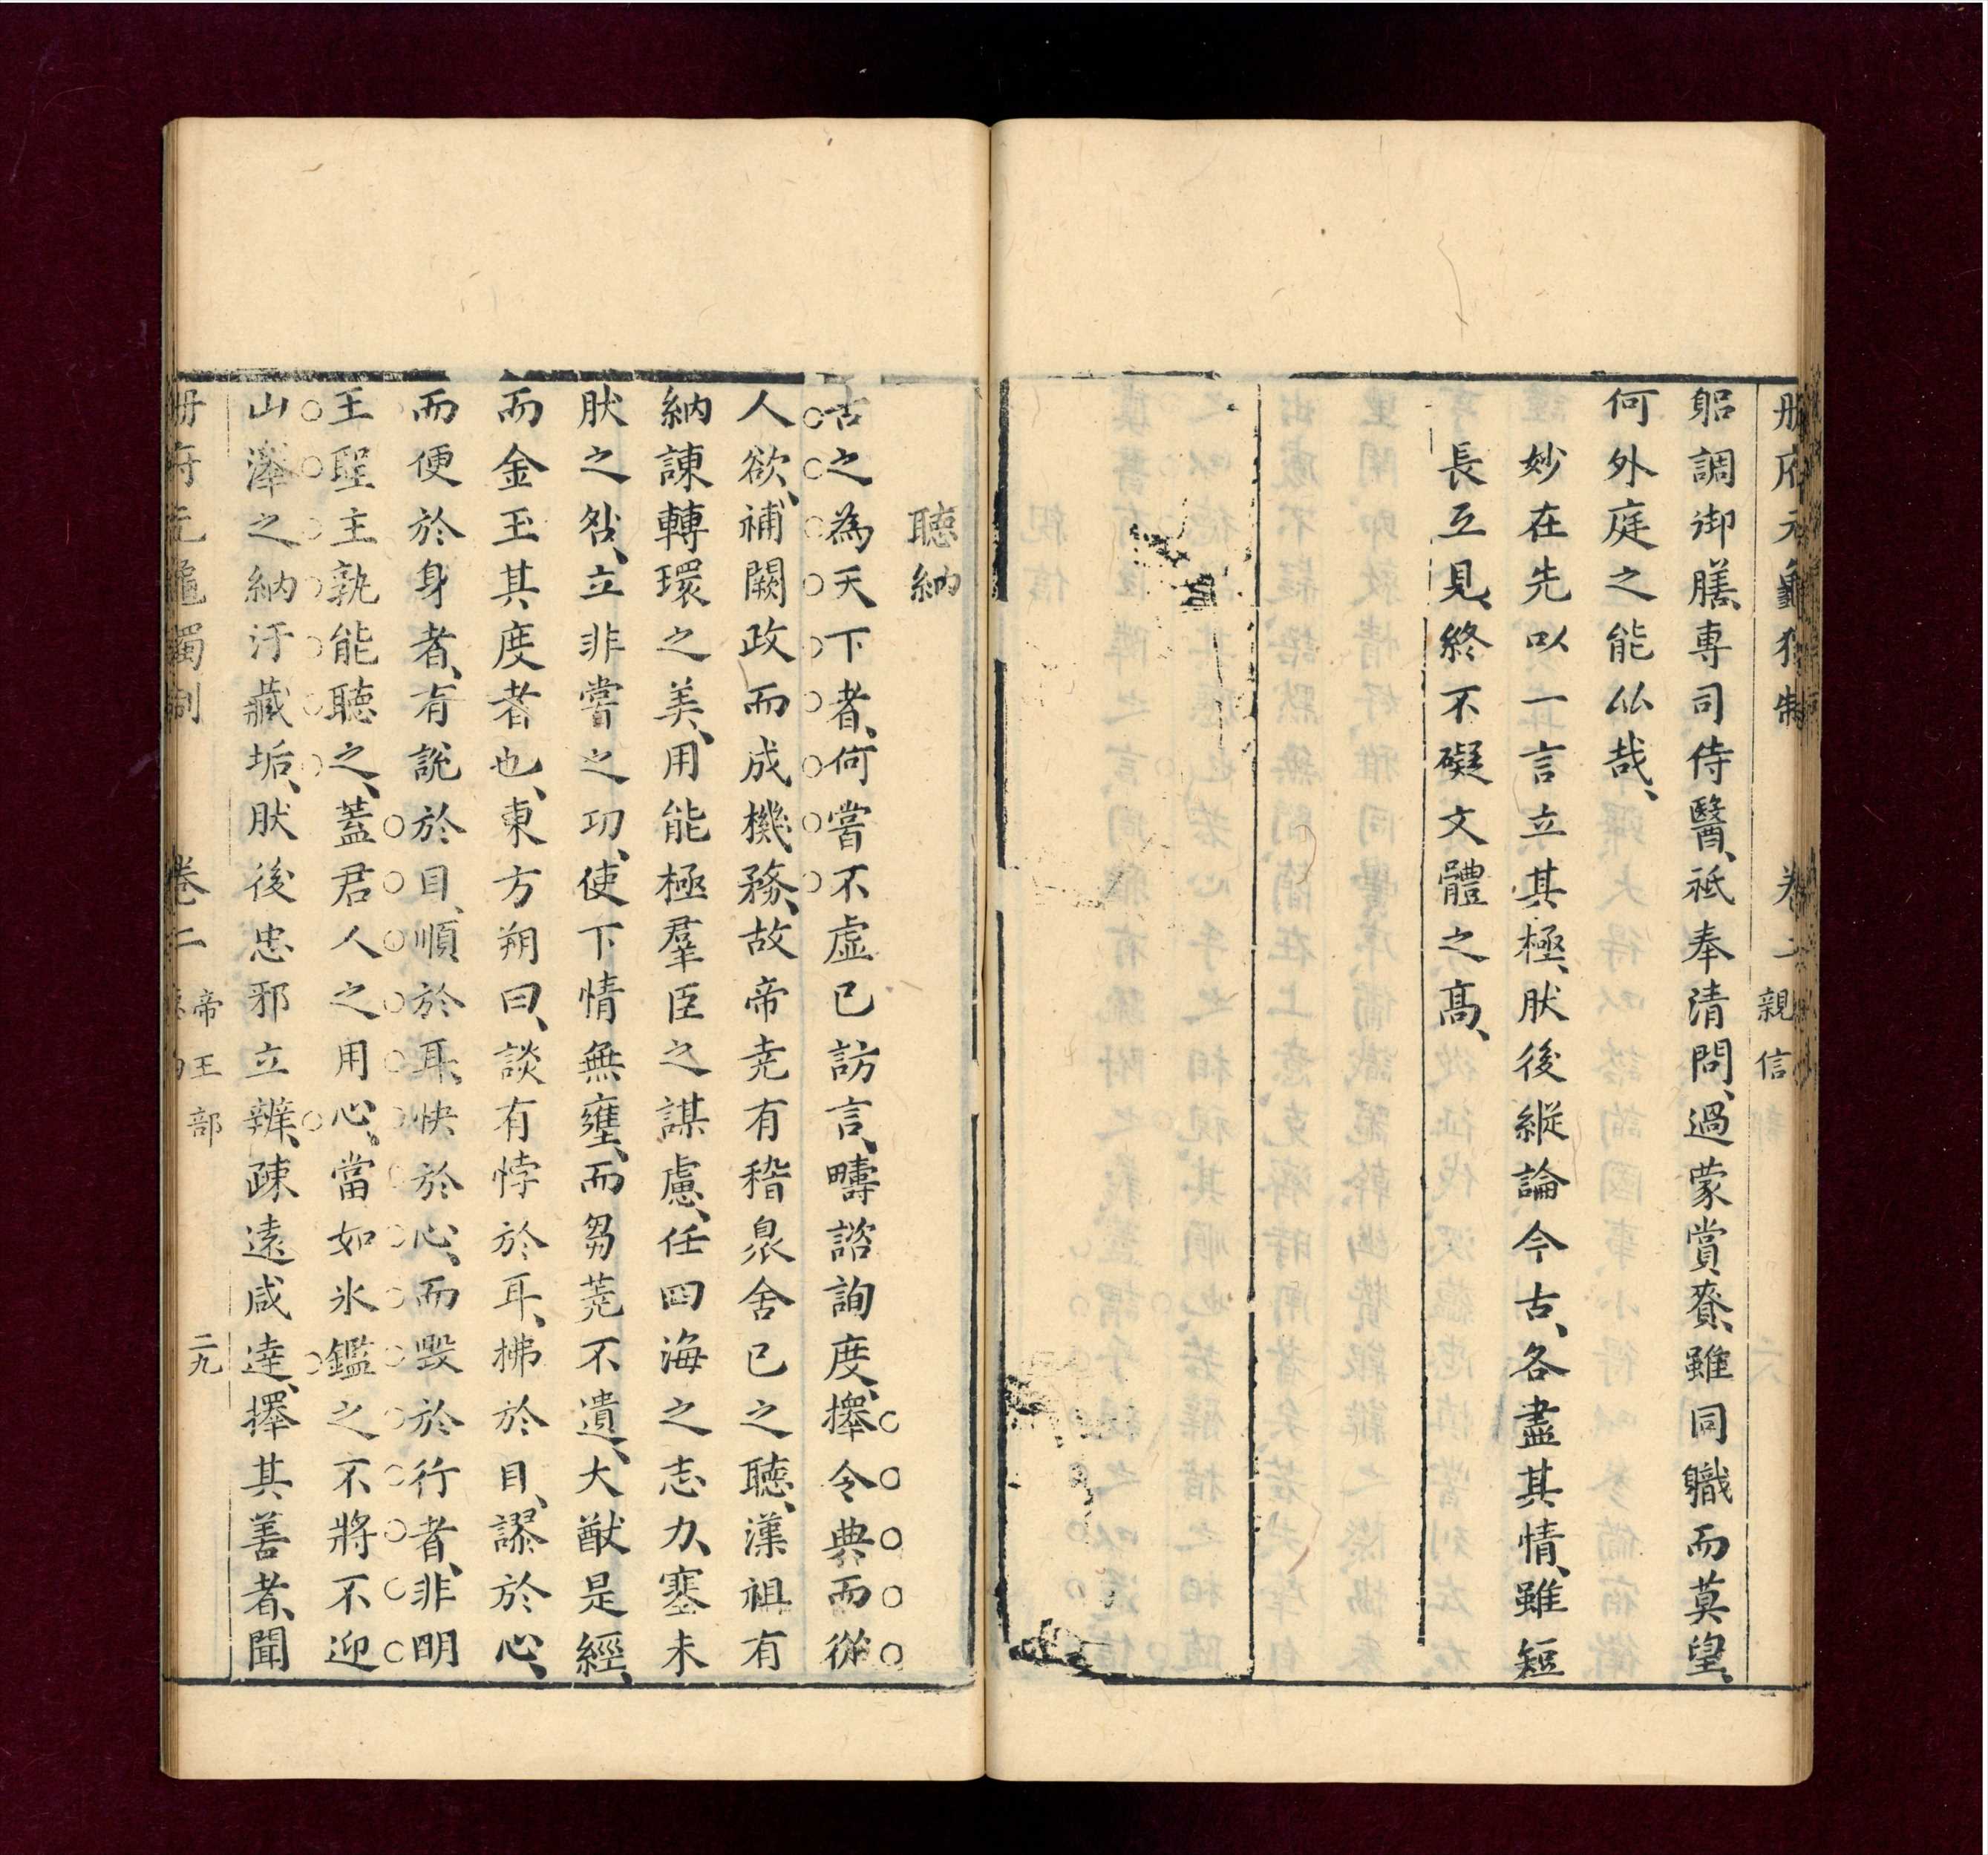 册府元龜獨制　卷二親信
躬調御膳、專司侍醫、祗奉清問、過蒙賞賚、雖同職而莫望、
何外庭之能仏哉、
妙在先以一言立其極、肰後縱論今古、各盡其情、雖短
長互見、終不礙文體之高、
聽納
古之為天下者、何嘗不虛已訪言、疇諮詢度、擇令典而從
人欲、補闕政而成機務、故帝堯有稽衆舍已之聽、漢祖有
納諫轉環之美、用能極羣臣之謀慮、任四海之志力、塞未
肰之咎、立非嘗之功、使下情無壅、而芻蕘不遺、大猷是經、
而金玉其度者也、東方朔曰、談有悖於耳、拂於目、謬於心、
而便於身者、有說於目、順於耳、快於心、而毀於行者、非明
王聖主孰能聽之、蓋君人之用心、當如氷鑑之不將不迎
山澤之納汙藏垢、肰後忠邪立辨、疎遠咸達、擇其善者、聞
册府元龜獨制　卷二　帝王部　二九